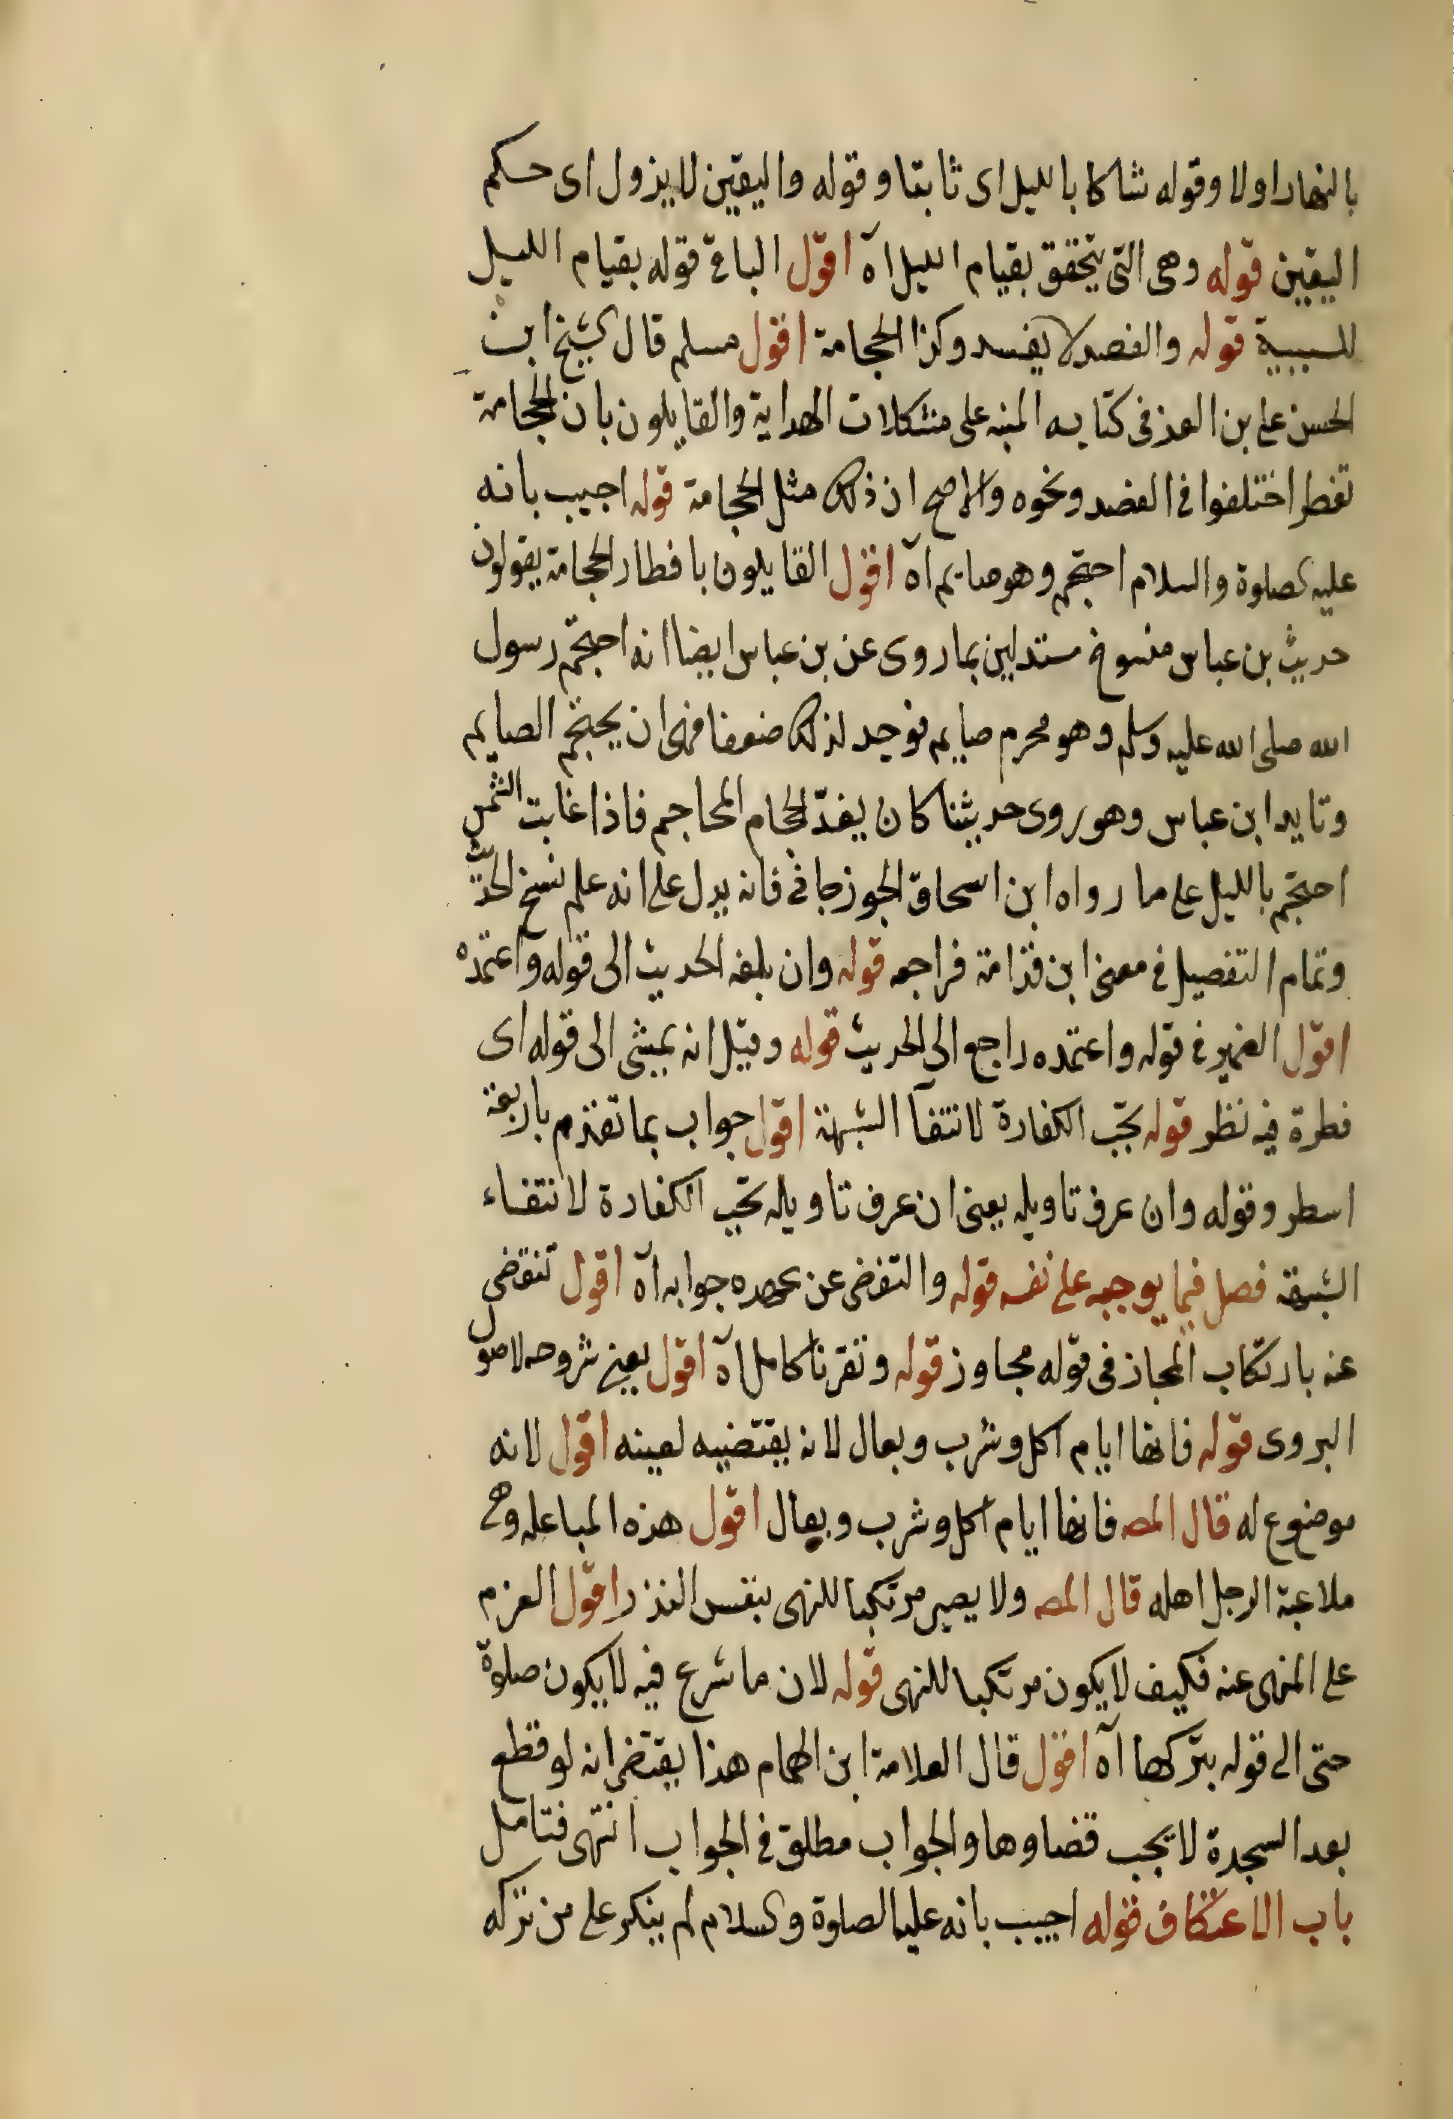 بالنهار اولا وقوله شاكا بالليل اى ثابتا وقوله واليقين لا يزول اى حكم
اليقين قوله وهى التى يتحقق بقيام الليل اه اقول الباء فى قوله بقيام الليل
للسببية قوله والفصد لا يفسد وكذا الحجامة اقول مسلم قال الشيخ ابن
الحسن على بن العز فى كتابه المنبه على مشكلات الهداية والقايلون بان الحجامة
تفطر اختلفوا فى الفصد ونحوه والاصح ان ذلك مثل الحجامة قوله اجيب بانه
عليه الصلوة والسلام احتجم وهو صايم اه اقول القايلون بافطار الحجامة يقولون
حديث بن عباس منسوخ مستدلين بما روى عن بن عباس ايضا انه احتجم رسول
الله صلى الله عليه وسلم وهو محرم صايم فوجد لذلك ضعفا فنهى ان يحتجم الصايم
وتايد ابن عباس وهو روى حديثنا كان يعد الحجام المحاجم فاذا غابت الشمس
احتجم بالليل على ما رواه ابن اسحاق الجوزجانى فانه يدل على انه علم نسخ الحديث
وتمام التفصيل فى مغنى ابن قدامة فراجعه قوله وان بلغه الحديث الى قوله واعتمده
اقول الضمير فى قوله واعتمده راجع الى الحديث قوله وقيل انه يمشى الى قوله اى
فطرة فيه نظر قوله تجب الكفارة لانتفآ الشبهة اقول جواب بما تقدم باربعة
اسطر وقوله وان عرف تاويله يعنى ان عرف تاويله تجب الكفارة لانتفاء
الشبهة فصل فيما يوجبه على نفسه قوله والتفضى عن عهده جوابه اه اقول تنقضى
عنه بارتكاب المجاز فى قوله مجاوز قوله وتقرنا كامل اه اقول يعنى شروحه لاصول
البزدوى قوله فانها ايام اكل وشرب وبعال لانه يقتضيه لعينه اقول لانه
موضوع له قال المصه فانها ايام اكل وشرب وبعال اقول هذه المباعله وهى
ملاعبة الرجل اهله قال المصه ولا يصير مرتكبا للنهى بنفس النذر اقول العزم
على المنهى عنه فكيف لا يكون مرتكبا للنهى قوله لان ما شرع فيه لا يكون صلوة
حتى الى قوله بتركها اه اقول قال العلامة ابن الهمام هذا يقتضى انه لو قطع
بعد السجدة لا يجب قضاوها والجواب مطلق فى الجواب انتهى فتامل
باب الاعتكاف قوله اجيب بانه عليه الصلوة والسلام لم ينكر على من تركه